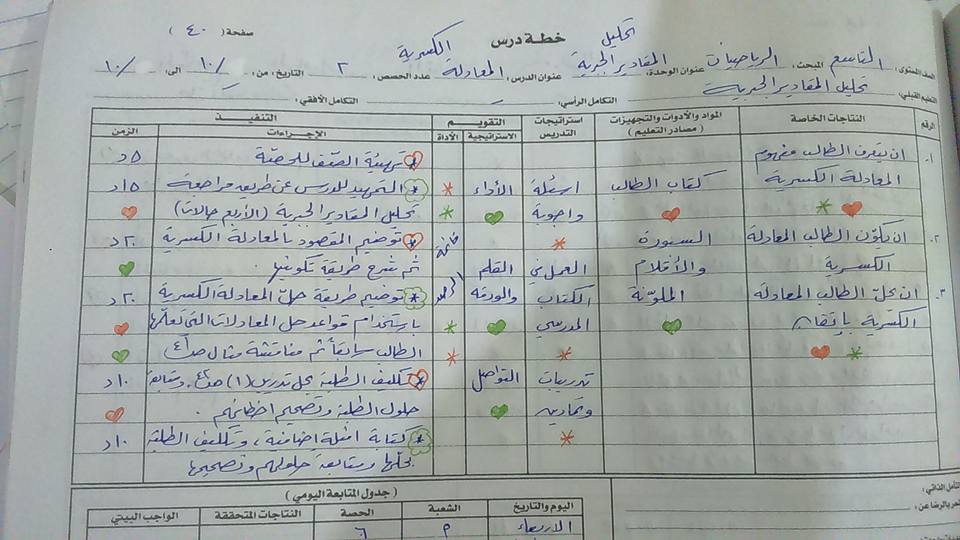 خطة درس
صفحة ( ٤٠ )
الصف/المستوى: التاسع المبحث: الرياضيات عنوان الوحدة: تحليل المقادير الجبرية عنوان الدرس: المعادلة الكسرية عدد الحصص: ٢ التاريخ: من: /١٠ إلى: /١٠
التعليم القبلي: تحليل المقادير الجبرية التكامل الرأسي: التكامل الأفقي:
الرقم النتاجات الخاصة المواد والأدوات والتجهيزات (مصادر التعليم) استراتيجيات التدريس التقويم الاستراتيجية الأداة التنفيذ الإجراءات الزمن
١. ان يتعرف الطالب مفهوم
المعادلة الكسرية
٢. ان يكوّن الطالب المعادلة
الكسرية
٣. ان يحلّ الطالب المعادلة
الكسرية بإتقان
كتاب الطالب
السبورة
والأقلام
الملوّنة
اسئلة
واجوبة
العمل في
الكتاب
المدرسي
تدريبات
وتمارين
الأداء
القلم
والورقة
التواصل
قائمة
تهيئة الصف للحصة ٥ د
التمهيد للدرس عن طريق مراجعة ١٥ د
تحليل المقادير الجبرية (الأربع حالات)
توضيح المقصود بالمعادلة الكسرية ٢٠ د
ثم شرح طريقة تكوينها.
توضيح طريقة حلّ المعادلة الكسرية ٢٠ د
باستخدام قواعد حل المعادلات التي تعلّمها
الطالب سابقاً ثم مناقشة مثال
تكليف الطلبة بحل تدريب (١) ومتابعة ١٠ د
حلول الطلبة وتصحيح اخطائهم.
كتابة امثلة إضافية، وتكليف الطلبة ١٠ د
بحلّها ومتابعة حلولهم وتصحيحها
( جدول المتابعة اليومي )
اليوم والتاريخ الشعبة الحصة النتاجات المتحققة الواجب البيتي
الاربعاء ٦
التأمل الذاتي:
أشعر بالرضا عن: